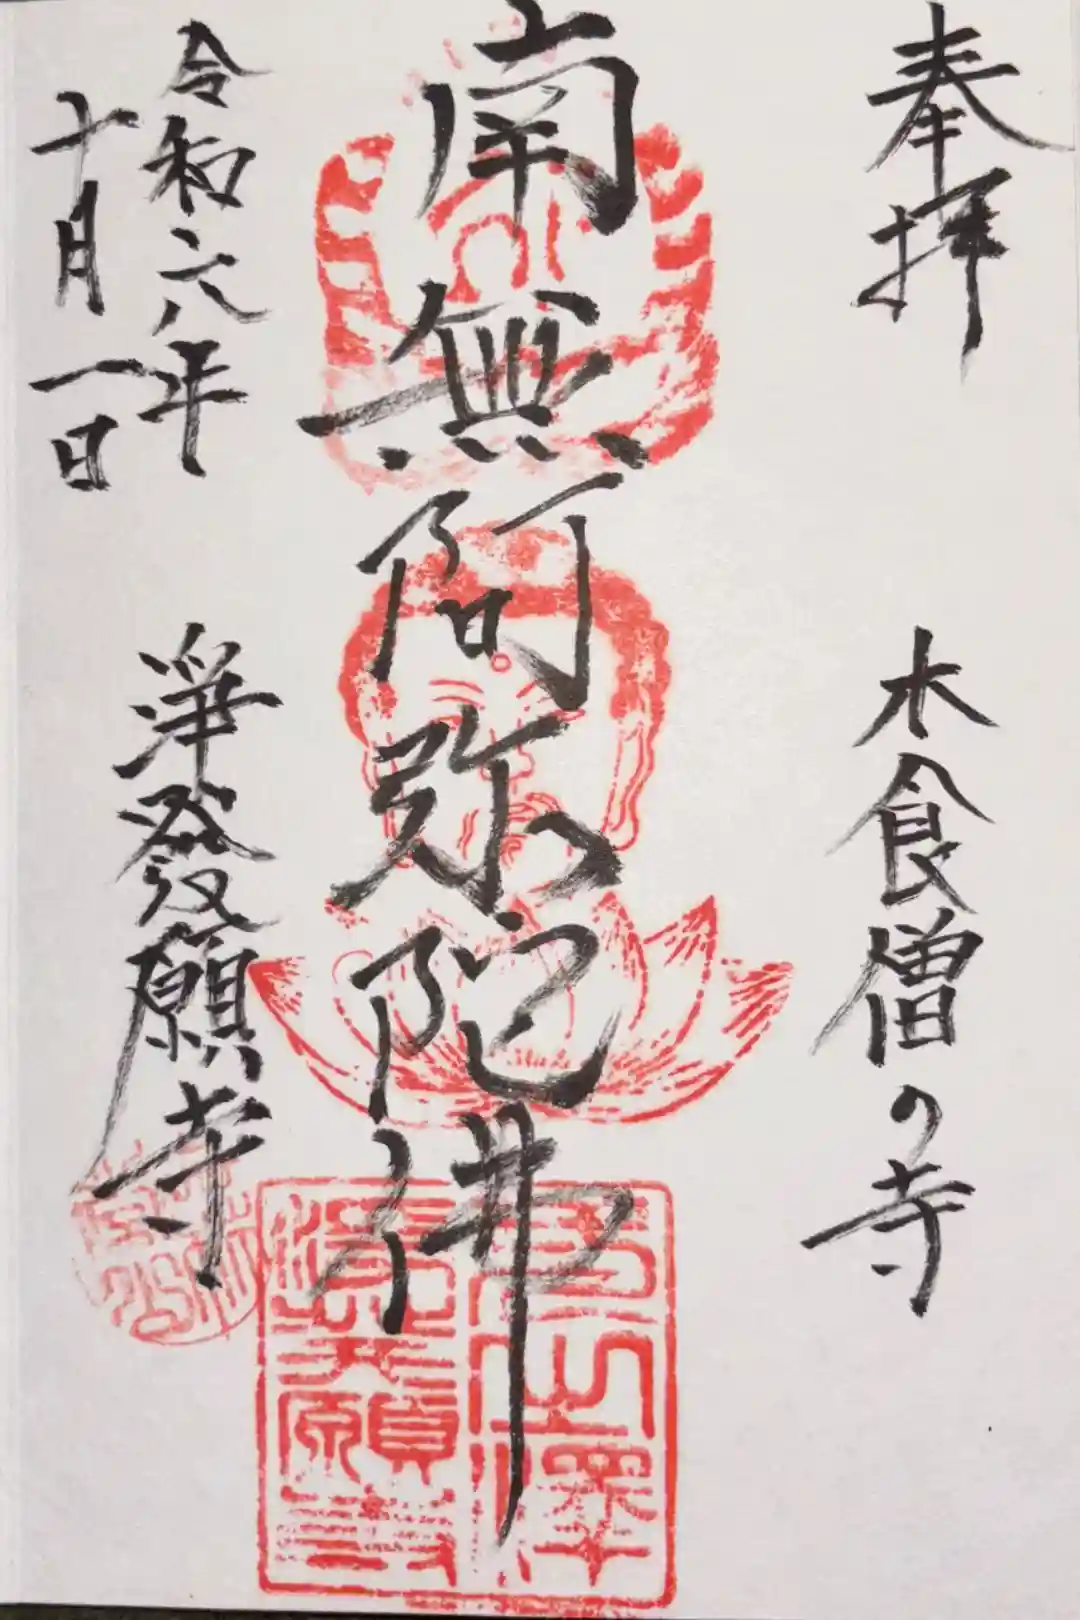 奉拝
木食僧の寺
南無阿弥陀佛
令和六年
十月一日
浄発願寺